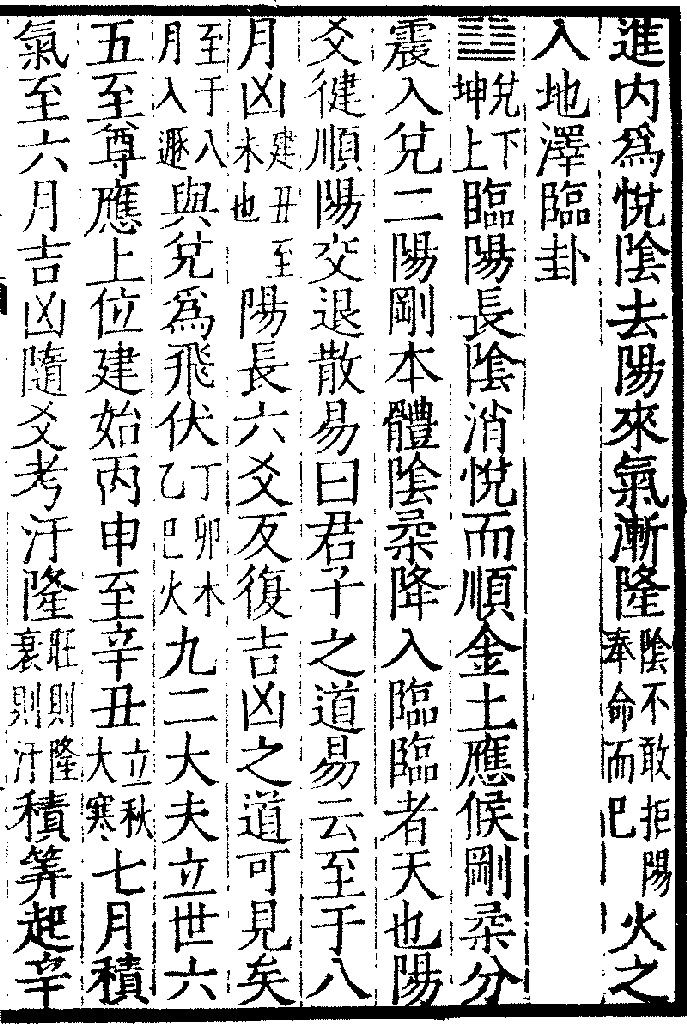 進内爲悅陰去陽來氣漸隆陰不敢拒陽奉命而已火之
入地澤臨卦
䷒兌下坤上臨陽長陰消悅而順金土應候剛柔分
震入兌二陽剛本體陰柔降入臨臨者天也陽
爻徤順陽交退散易曰君子之道易云至于八
月凶建丑至未也陽長六爻反復吉凶之道可見矣
至于八月入遯與兌爲飛伏丁卯木乙巳火九二大夫立世六
五至尊應上位建始丙申至辛丑立秋大寒七月積
氣至六月吉凶隨爻考汙隆旺則隆衰則汙積筭起辛